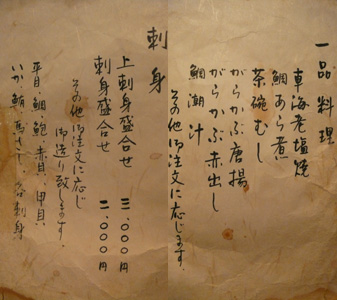 一品料理
車海老塩焼
鯛あら煮
茶碗むし
がらかぶ唐揚
がらかぶ赤出し
鯛潮汁
その他御注文に応じます。
刺身
上刺身盛合せ 三、〇〇〇円
刺身盛合せ 二、〇〇〇円
その他御注文に応じ
御造り致します。
平目、鯛、鮑、赤貝、甲貝
いか、鮪、馬さし、各刺身